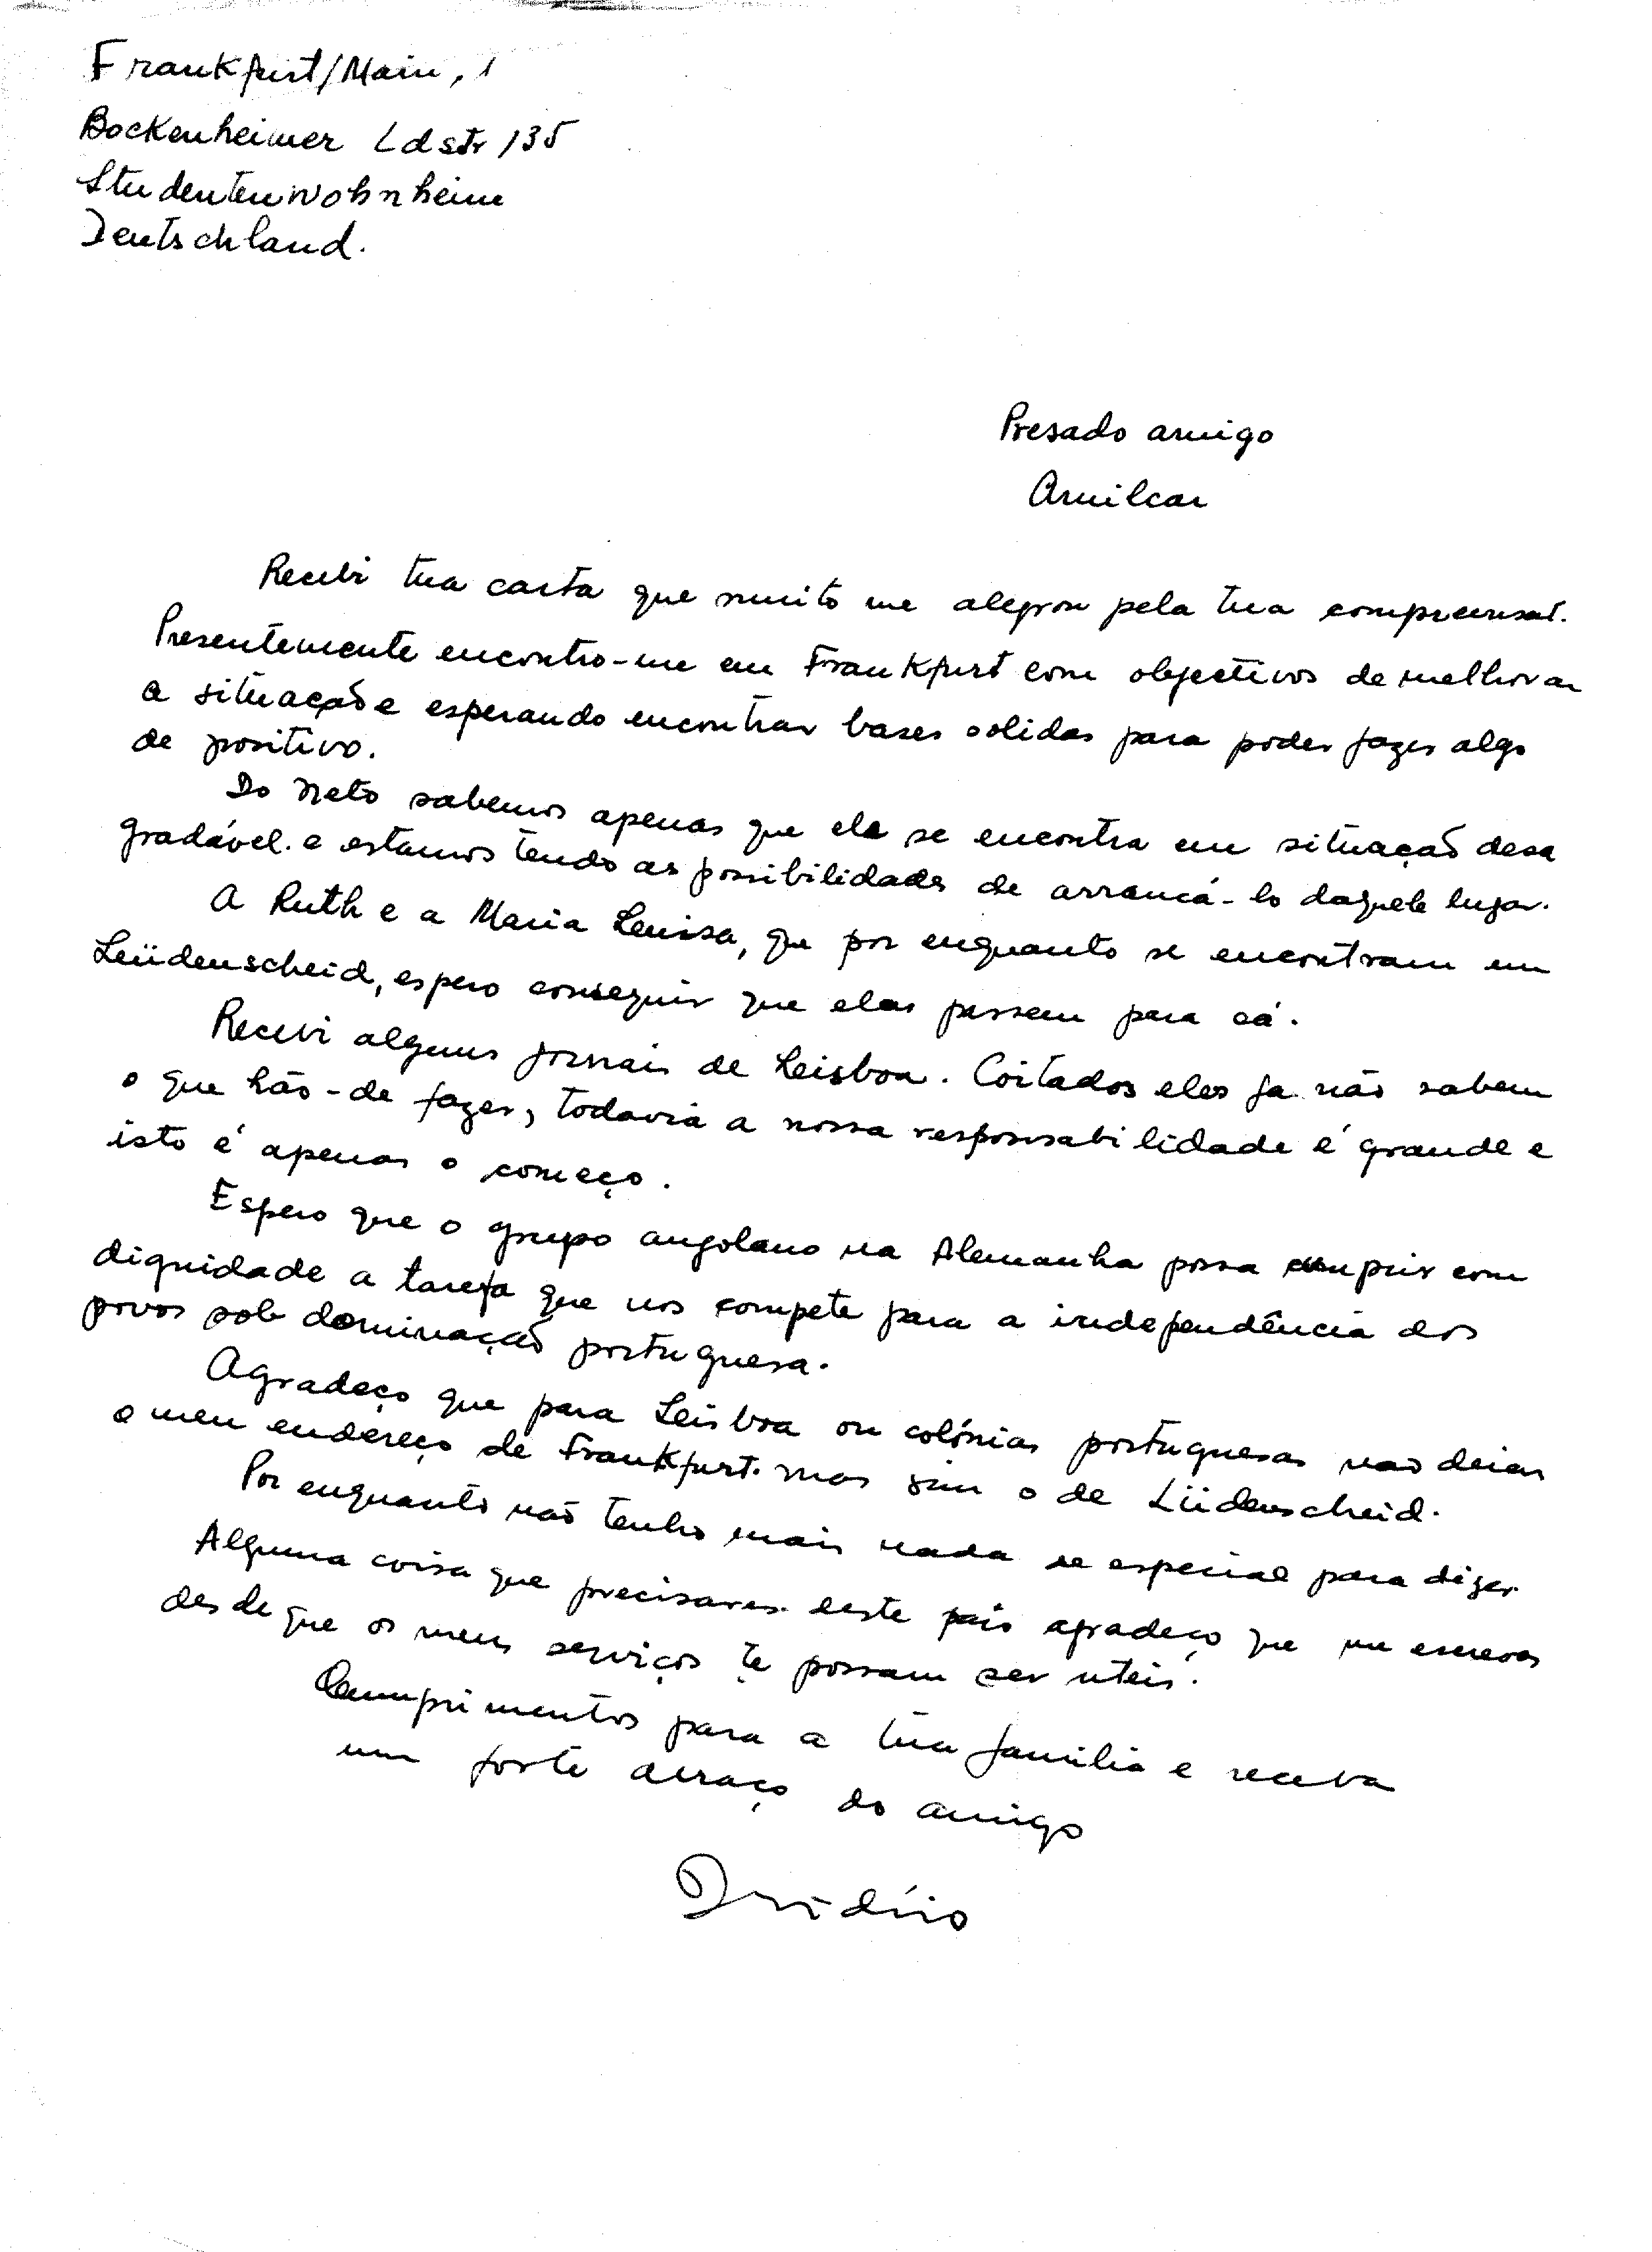 Frankfurt/Main, 1
Bockenheimer Ldstr 135
Studentenwohnheim
Deutschland.
Presado amigo
Amilcar
Recebi tua carta que muito me alegrou pela tua compreensaõ.
Presentemente encontro-me em Frankfurt com objectivos de melhorar
a situaçaõ e esperando encontrar bases solidas para poder fazer algo
de positivo.
Do Neto sabemos apenas que ele se encontra em situaçaõ desa
gradável. e estamos tendo as possibilidades de arrancá-lo daquele lugar.
A Ruth e a Maria Leuisa, que por enquanto se encontram em
Leüdenscheid, espero conseguir que elas passem para cá.
Recebi alguns jornais de Leisboa. Coitados eles ja não sabem
o que hão-de fazer, todavia a nossa responsabilidade é grande e
isto é apenas o começo.
Espero que o grupo angolano na Alemanha possa cumprir com
dignidade a tarefa que nos compete para a independência dos
povos sob dominaçaõ portuguesa.
Agradeço que para Leisboa ou colónias portuguesas naõ deias
o meu endereço de Frankfurt. mas sim o de Lüdenscheid.
Por enquanto naõ tenho mais nada de especial para dizer.
Alguma coisa que precisares. deste pais agradeço que me escrevas
desde que os meus serviços te possam ser uteis.
Cumprimentos para a tua familia e receba
um forte abraço do amigo